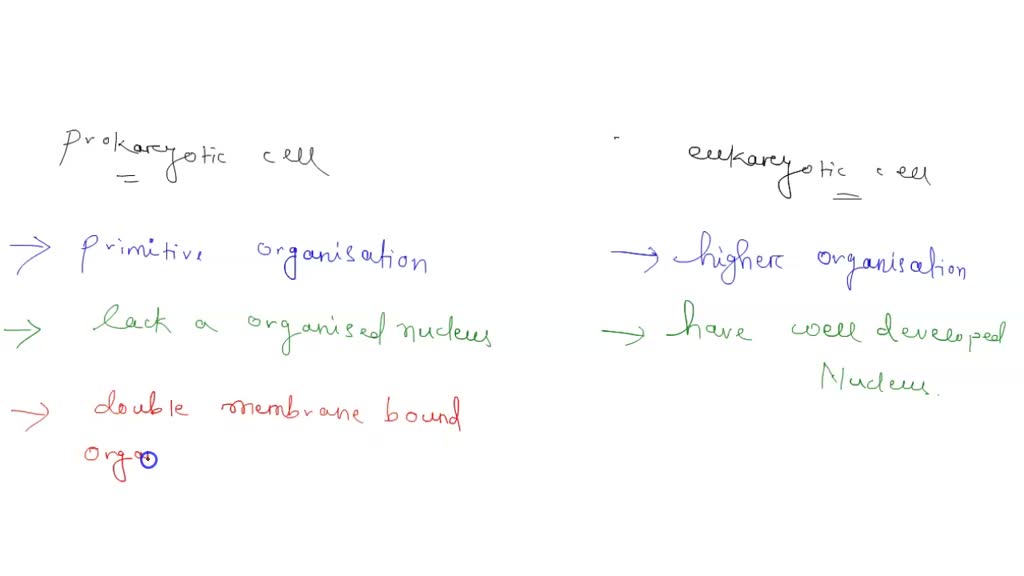 prokaryotic cell
eukaryotic cell
→ primitive organisation
→ higher organisation
→ lack a organised nucleus
→ have well developed
Nucleus.
→ double membrane bound
orga